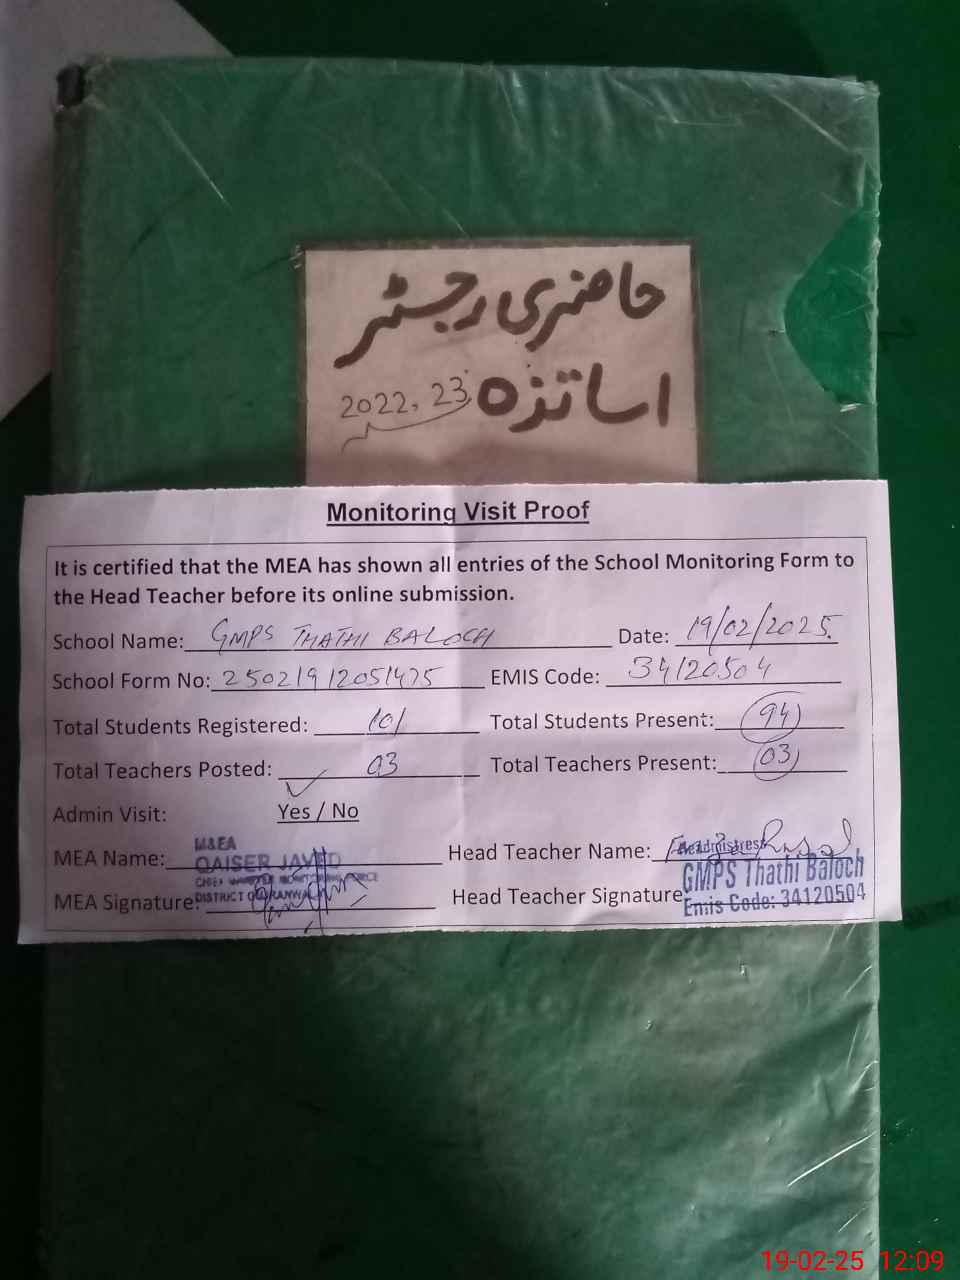 حاضری رجسٹر
اساتذہ 2022, 23
Monitoring Visit Proof
It is certified that the MEA has shown all entries of the School Monitoring Form to
the Head Teacher before its online submission.
School Name: GMPS THATHI BALOCH Date: 19/02/2025
School Form No: 25021912051475 EMIS Code: 34120504
Total Students Registered: 101 Total Students Present: 94
Total Teachers Posted: 03 Total Teachers Present: 03
Admin Visit: Yes / No
M&EA
MEA Name: QAISER JAVED Head Teacher Name: Headmistress
CHIEF MINISTER MONITORING FORCE GMPS Thathi Baloch
MEA Signature: DISTRICT Head Teacher Signature Emis Code: 34120504
19-02-25 12:09